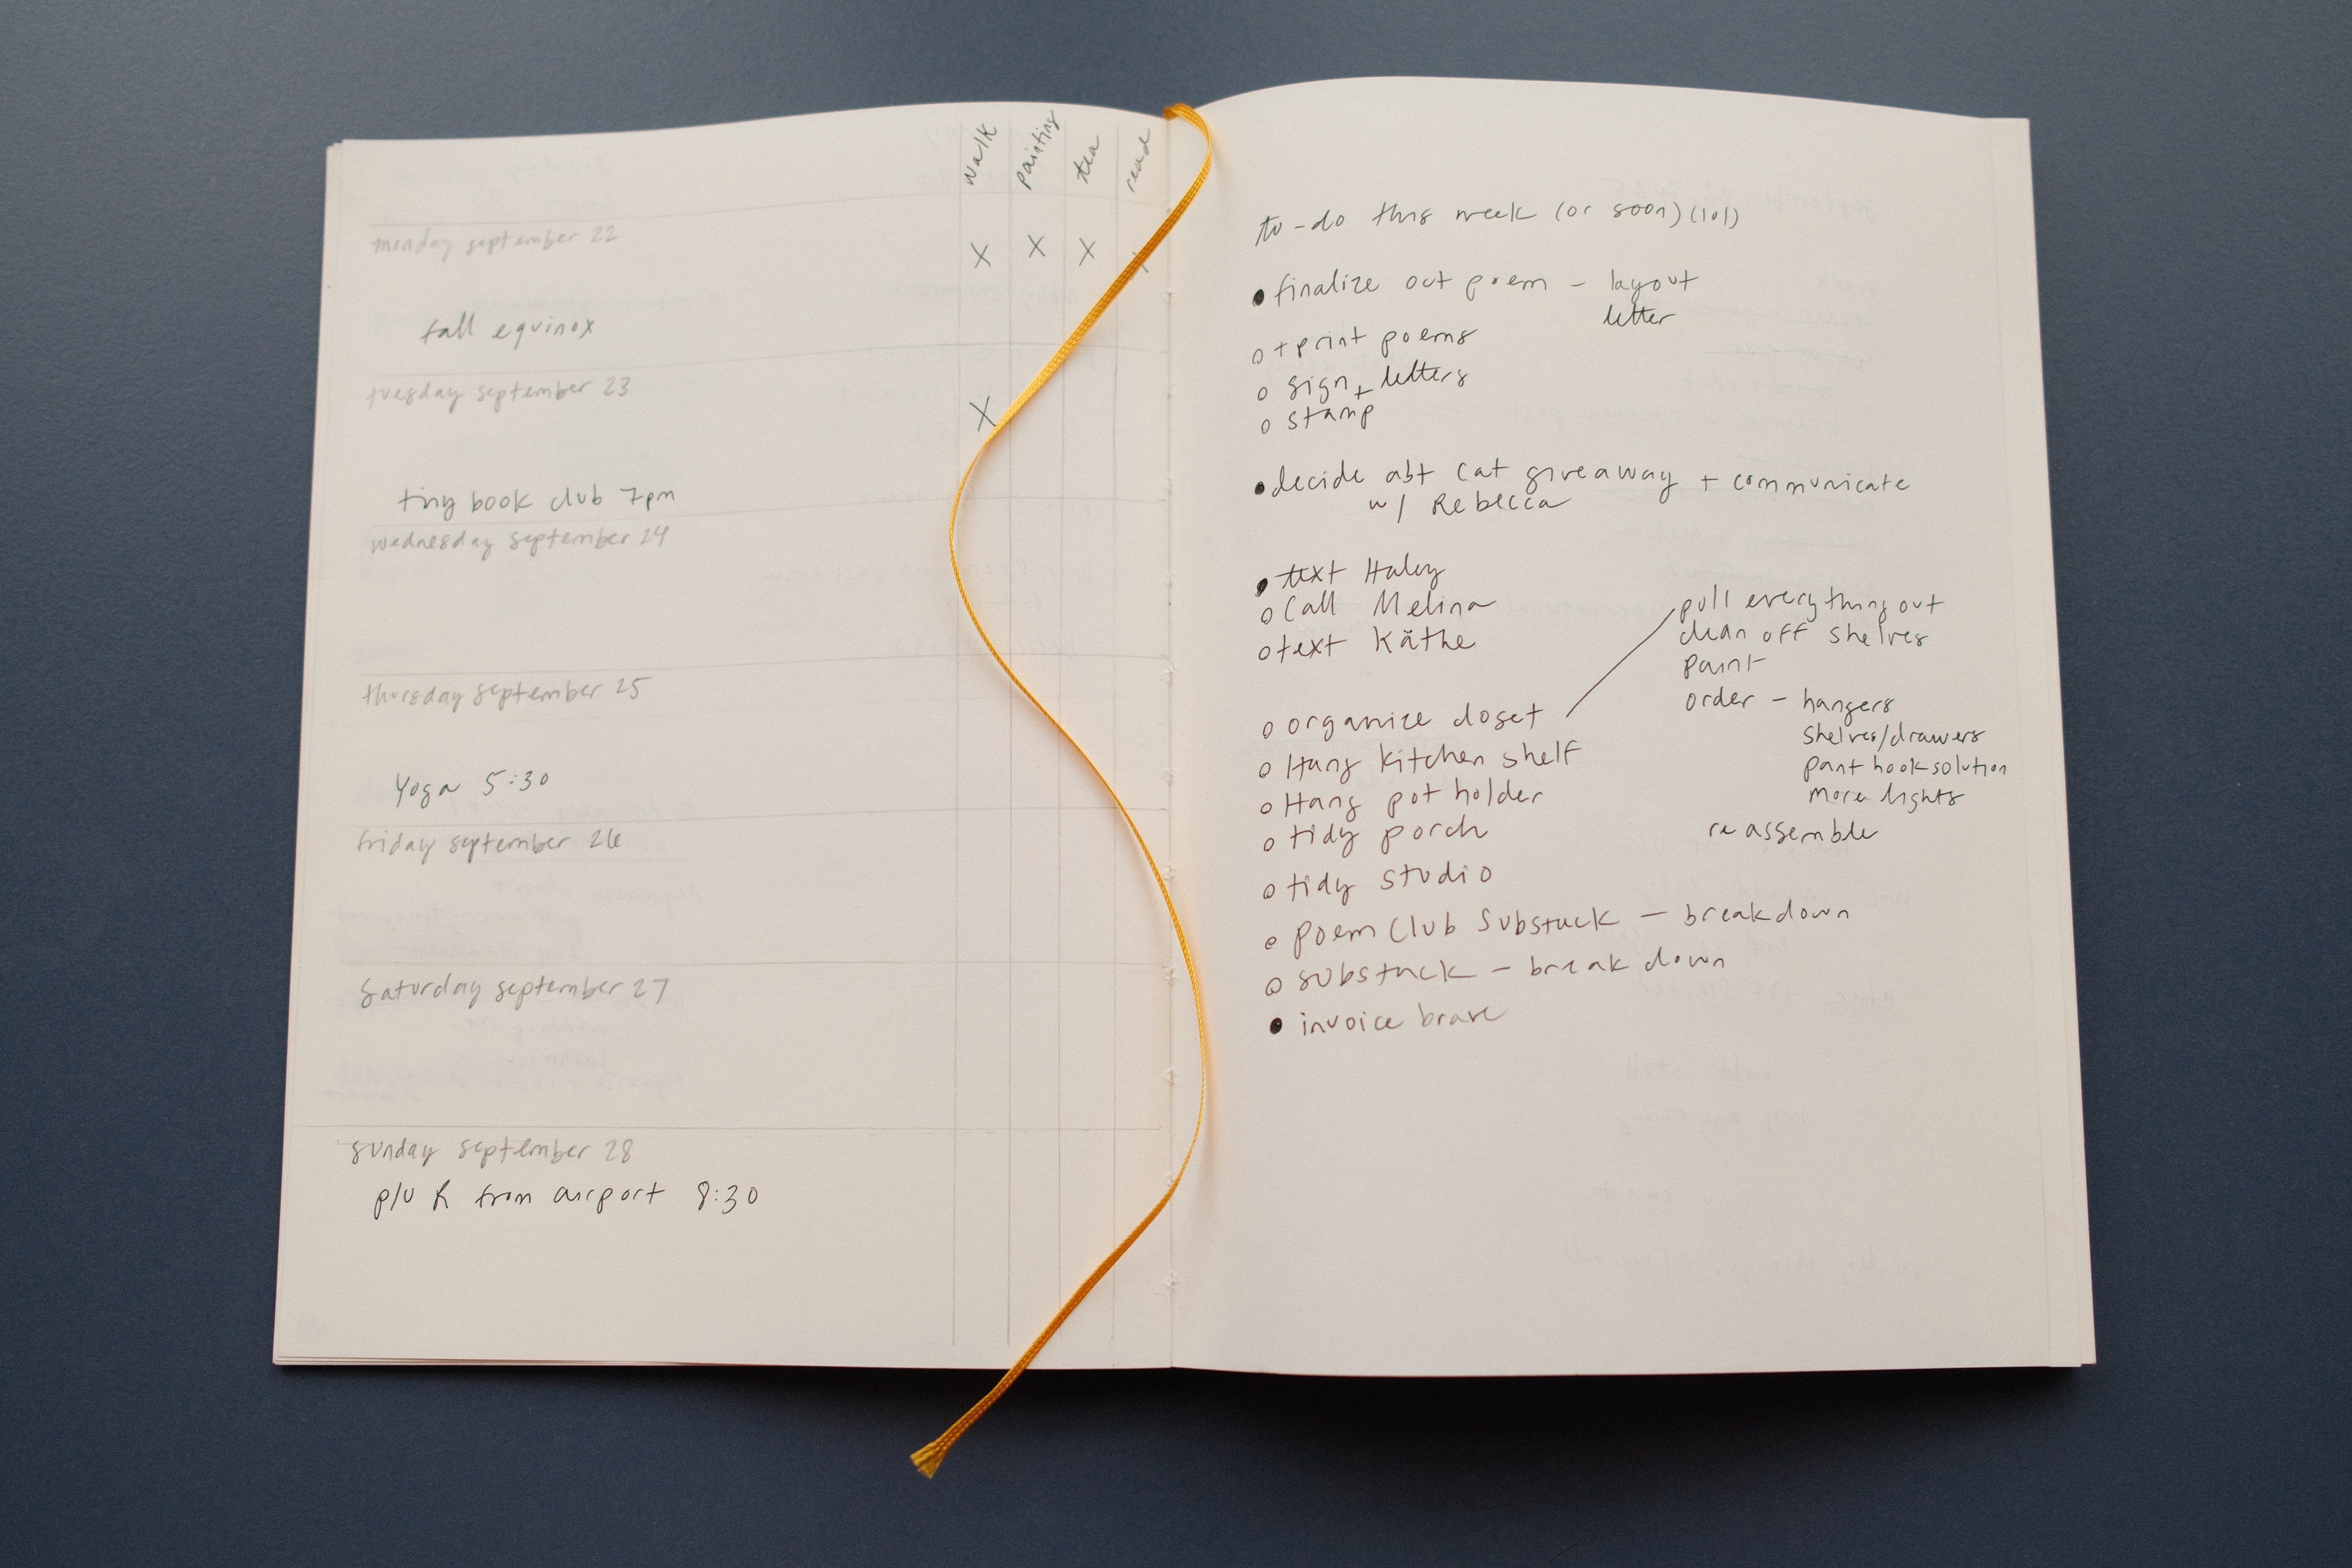 walk painting tea read
monday september 22
X X X X
fall equinox
tuesday september 23
X
tiny book club 7pm
wednesday september 24
thursday september 25
Yoga 5:30
friday september 26
saturday september 27
sunday september 28
p/u R from airport 8:30
to-do this week (or soon) (lol)
finalize oct poem - layout
letter
+ print poems
sign + letters
stamp
decide abt cat giveaway + communicate
w/ Rebecca
text Haley
Call Melina
text Käthe
organize closet
pull everything out
clean off shelves
paint
order - hangers
shelves/drawers
pant hook solution
more lights
re assemble
Hang kitchen shelf
Hang pot holder
tidy porch
tidy studio
poem Club Substack - breakdown
substack - break down
invoice brave